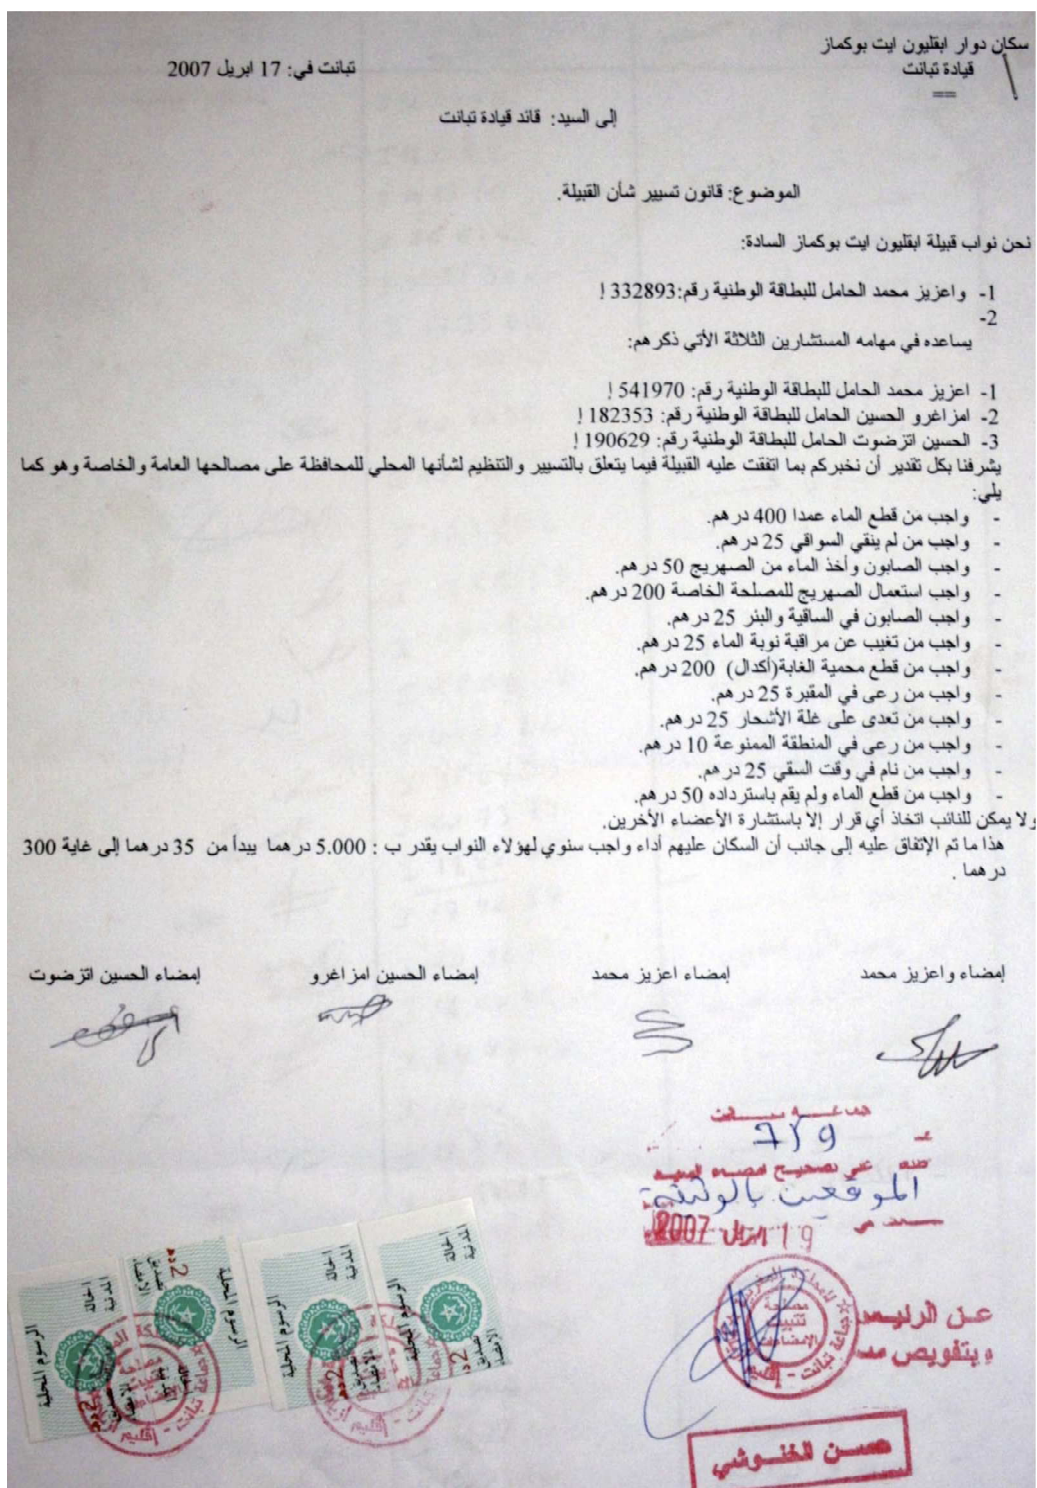 سكان دوار ابقليون ايت بوكماز
قيادة تبانت
==
تبانت في: 17 ابريل 2007
إلى السيد: قائد قيادة تبانت
الموضوع: قانون تسيير شأن القبيلة.
نحن نواب قبيلة ابقليون ايت بوكماز السادة:
1- واعزيز محمد الحامل للبطاقة الوطنية رقم:332893 !
2-
يساعده في مهامه المستشارين الثلاثة الأتي ذكرهم:
1- اعزيز محمد الحامل للبطاقة الوطنية رقم: 541970 !
2- امزاغرو الحسين الحامل للبطاقة الوطنية رقم: 182353 !
3- الحسين اتزضوت الحامل للبطاقة الوطنية رقم: 190629 !
يشرفنا بكل تقدير أن نخبركم بما اتفقت عليه القبيلة فيما يتعلق بالتسيير والتنظيم لشأنها المحلي للمحافظة على مصالحها العامة والخاصة وهو كما
يلي:
- واجب من قطع الماء عمدا 400 درهم.
- واجب من لم ينقي السواقي 25 درهم.
- واجب الصابون وأخذ الماء من الصهريج 50 درهم.
- واجب استعمال الصهريج للمصلحة الخاصة 200 درهم.
- واجب الصابون في الساقية والبئر 25 درهم.
- واجب من تغيب عن مراقبة نوبة الماء 25 درهم.
- واجب من قطع محمية الغابة(أكدال) 200 درهم.
- واجب من رعى في المقبرة 25 درهم.
- واجب من تعدى على غلة الأشحار 25 درهم.
- واجب من رعى في المنطقة الممنوعة 10 درهم.
- واجب من نام في وقت السقي 25 درهم.
- واجب من قطع الماء ولم يقم باسترداده 50 درهم.
ولا يمكن للنائب اتخاذ أي قرار إلا باستشارة الأعضاء الأخرين.
هذا ما تم الإتفاق عليه إلى جانب أن السكان عليهم أداء واجب سنوي لهؤلاء النواب يقدر ب : 5.000 درهما يبدأ من 35 درهما إلى غاية 300
درهما .
إمضاء واعزيز محمد
إمضاء اعزيز محمد
إمضاء الحسين امزاغرو
إمضاء الحسين اتزضوت
الموقعين بالوثيقة
19 ابريل 2007
عن الرئيس
وبتفويض منه
حسن الخنوشي
الرسوم المحلية
الحالة المدنية
الرسوم المحلية
الحالة المدنية
الرسوم المحلية
الحالة المدنية
الرسوم المحلية
الحالة المدنية